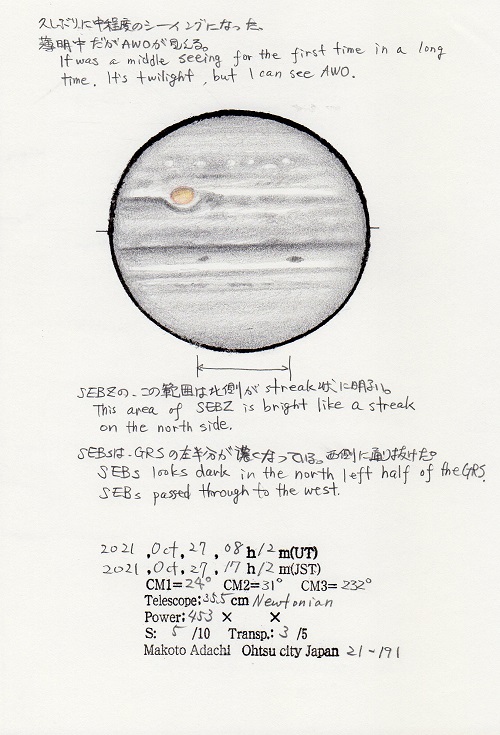 久しぶりに中程度のシーイングになった.
薄明中だがAWOが見える。
It was a middle seeing for the first time in a long
time. It's twilight, but I can see AWO.
SEBZの、この範囲は北側がstreak状に明るい。
This area of SEBZ is bright like a streak
on the north side.
SEBsは、GRSの左半分が濃くなっている。西側に通り抜けた。
SEBs looks dark in the north left half of the GRS.
SEBs passed through to the west.
2021 , Oct , 27 , 08 h 12 m(UT)
2021 , Oct , 27 , 17 h 12 m(JST)
CM1=24° CM2=31° CM3=232°
Telescope:35.5cm Newtonian
Power:453 × ×
S: 5 /10 Transp.: 3 /5
Makoto Adachi Ohtsu city Japan 21-191